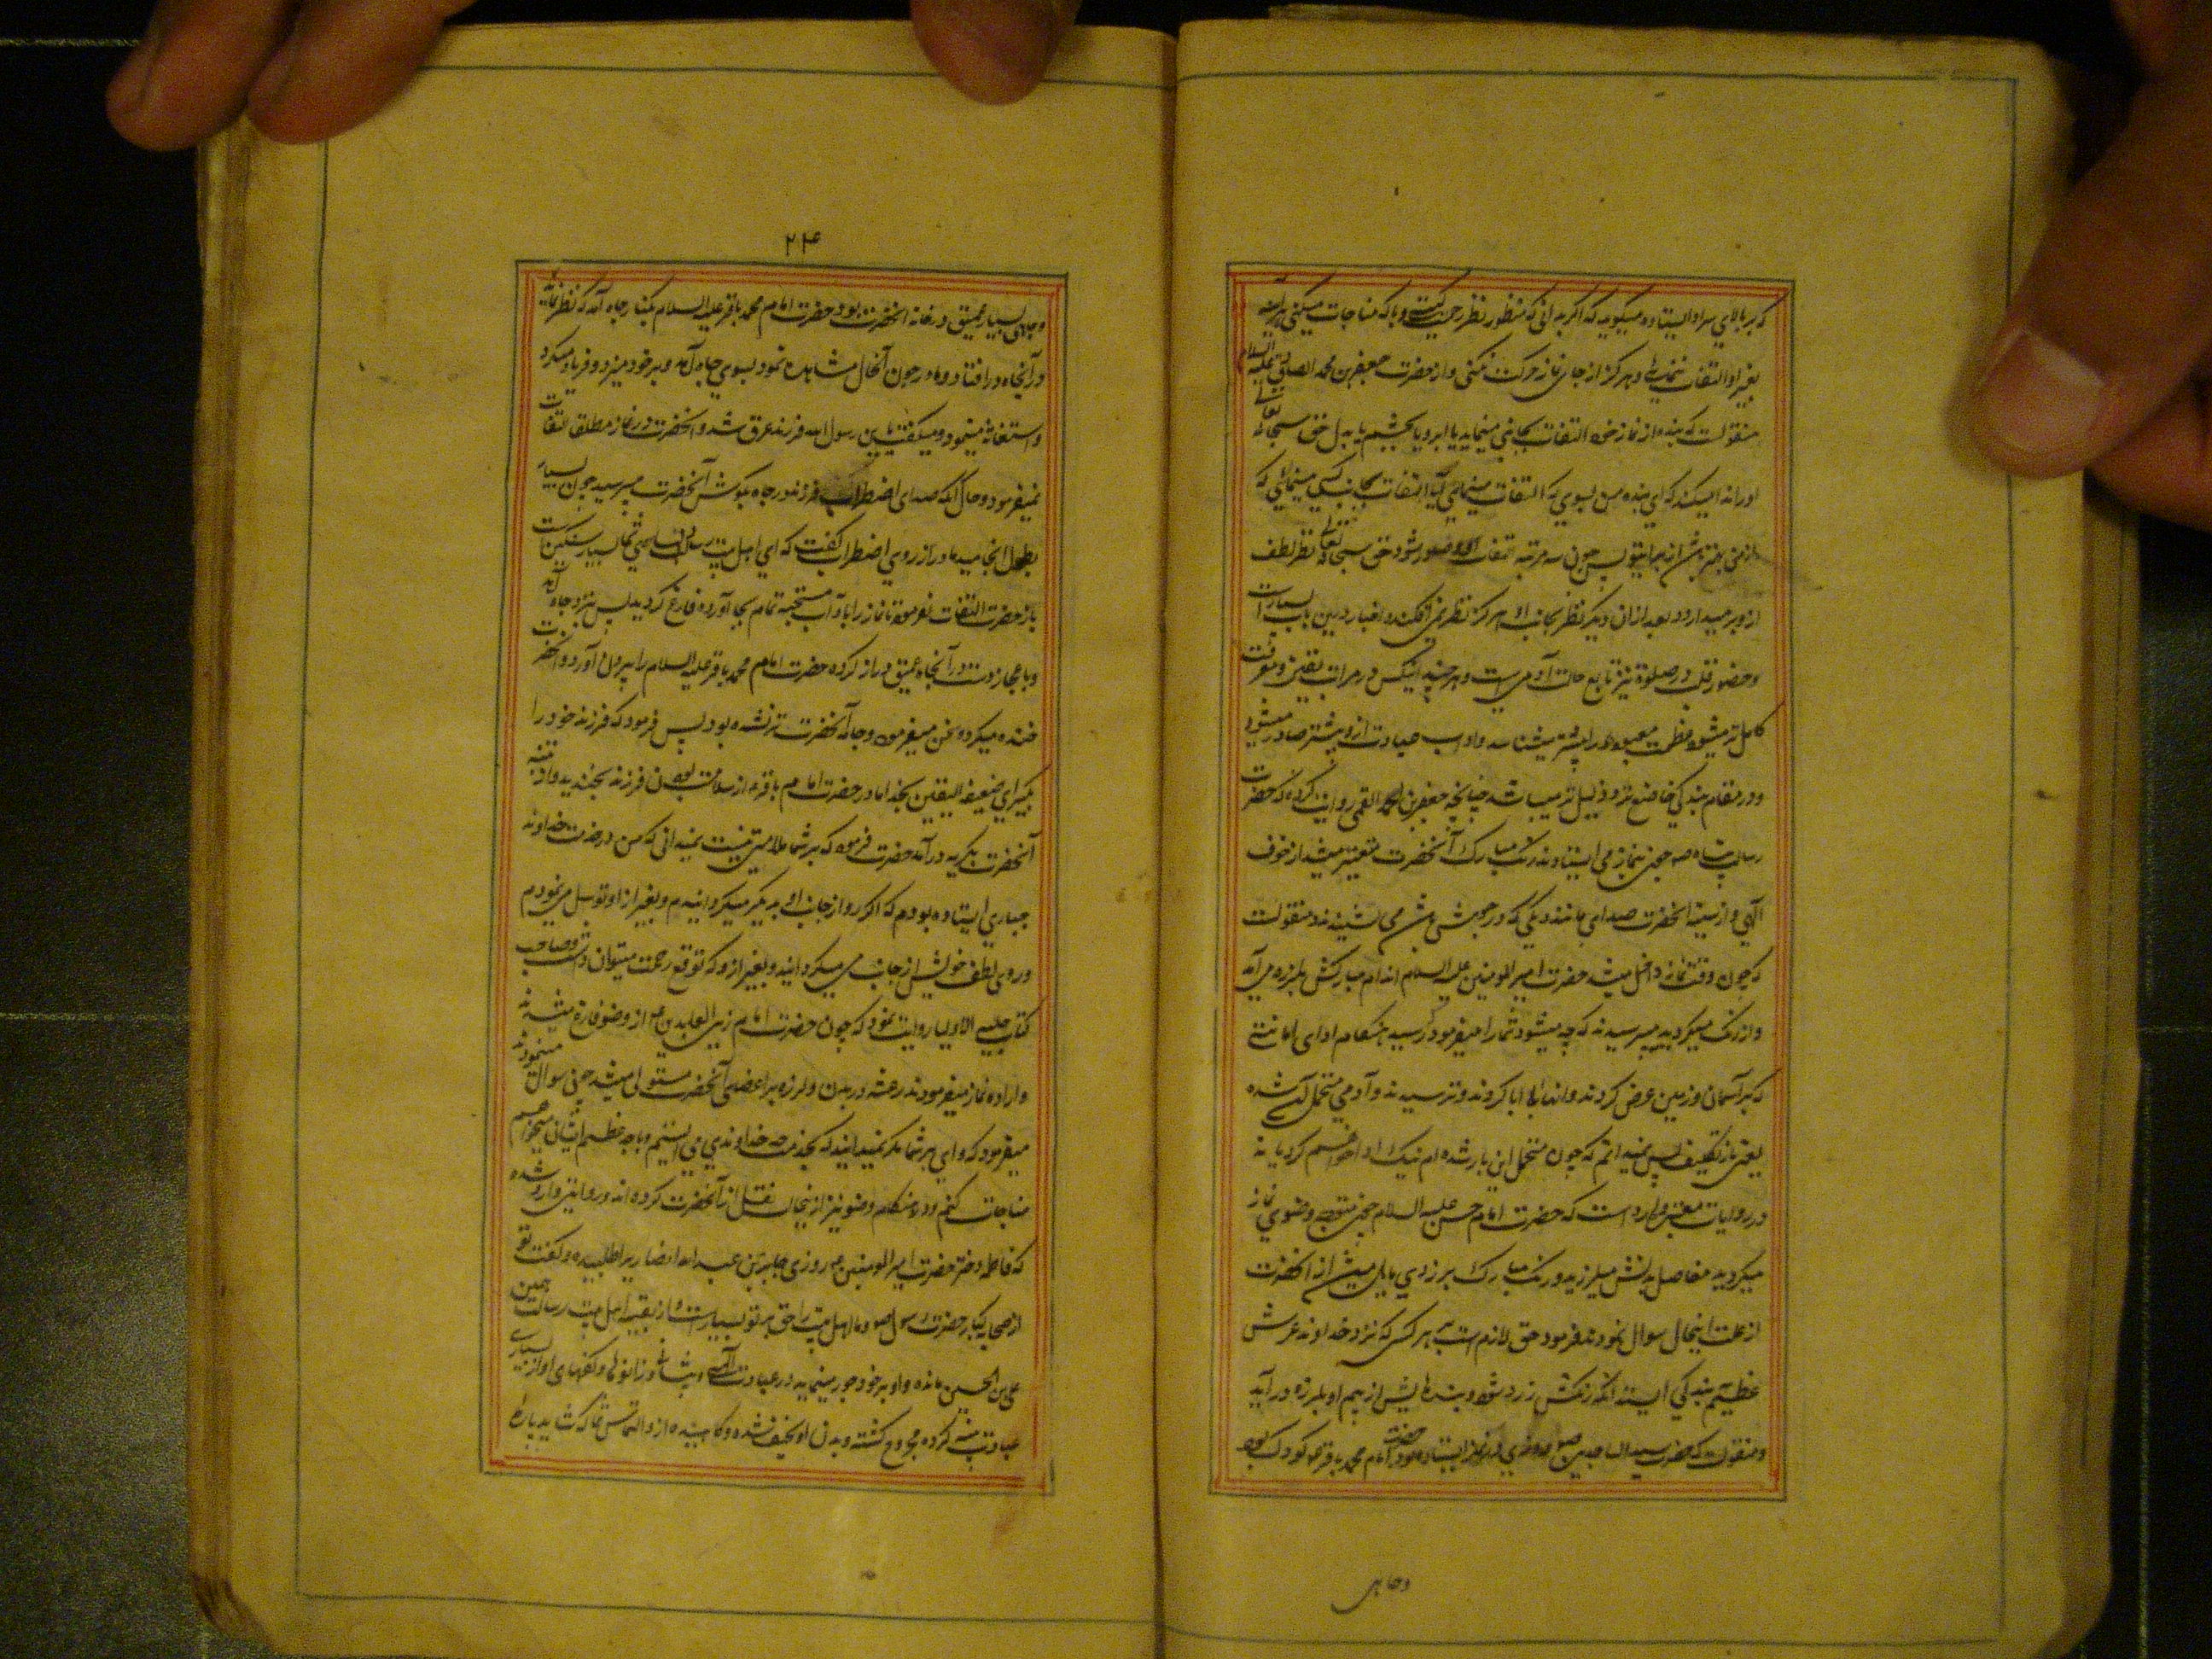 که بر بالای سر او ایستاده میگوید که اگر بدانی که منظور نظر رحمت کیستی و با که مناجات میکنی هر آینه
بغیر او التفات ننمائی و هرگز از جای نماز حرکت نکنی و از حضرت جعفر بن محمد الصادق علیه السلام
منقولست که بنده از نماز خود التفات بجانبی مینماید یا ابرو یا بچشم یا بدل حق سبحانه تعالی
او را ندا میکند که ای بنده من بسوی که التفات مینمائی آیا التفات بجانب کسی مینمائی که
از من بهتر باشد پس چون سه مرتبه التفات از او صادر شود حق سبحانه تعالی نظر لطف
از و برمیدارد و بعد از آن دیگر نظر بجانب او هرگز نظر نمی افکند و اخبار درین باب بسیارست
و حضور قلب در صلوة نیز تابع حالت آدمی است و هر چند اینکس در مراتب یقین و معرفت
کامل تر میشود عظمت معبود را بیشتر میشناسد و آداب عبادت از و بیشتر صادر میشود
و در مقام بندگی خاضع تر و ذلیل تر میباشد چنانچه جعفر بن احمد القمی روایت کرده که حضرت
رسالت پناه ص چون بنماز می ایستادند رنگ مبارک آنحضرت متغیر میشد از خوف
الهی و از سینه آنحضرت صدای مانند دیگی که در جوشش باشد می شنیدند و منقولست
که چون وقت نماز داخل میشد حضرت امیر المومنین علیه السلام اندام مبارکش بلرزه می آمد
و از رنگ میگردید میپرسیدند که چه میشود شما را میفرمود که رسید هنگام ادای امانتی
که بر آسمان و زمین عرض کردند و آنها ابا کردند و ترسیدند و آدمی متحمل آن شده
یعنی بار تکلیف پس نمیدانم که چون متحمل این بار شده ام نیک ادا خواهم کرد یا نه
در روایات معتبره وارد است که حضرت امام حسن علیه السلام چون متوجه وضوی نماز
میگردید مفاصل بدنش میلرزید و رنگ مبارک بزردی مایل میشد از آنحضرت
از علت اینحال سوال نمودند فرمود حق لازم است بر هر کس که نزد خداوند عرش
عظیم بندگی ایستد آنکه رنگش زرد شود و بندهایش از بیم او بلرزه در آید
و منقولست که حضرت سید الساجدین روزی در نماز ایستاده بود حضرت امام محمد باقر ع کودک بود
و چاهی
۲۴
و چاهی بسیار عمیق در خانه آنحضرت بود حضرت امام محمد باقر علیه السلام بکنار چاه آمد که نظر نماید
در آنچاه در افتاد و مادر چون آنحال مشاهده نمود بسوی چاه آمد و بر خود میزد و فریاد میکرد
و استغاثه مینمود و میگفت یا بن رسول الله فرزند غرق شد و آنحضرت در نماز مطلقا التفات
نمیفرمود و حال آنکه صدای اضطراب فرزند در چاه بگوش آنحضرت میرسید چون بسیار
بطول انجامید مادر از روی اضطراب گفت که ای اهل بیت رسالت دلهای شما بسیار سنگین است
باز حضرت التفات نفرمود تا نماز را با آداب مستحبه تمام بجا آورده فارغ گردید پس بنزد چاه آمد
و باعجاز دست در آنچاه عمیق دراز کرده حضرت امام محمد باقر علیه السلام را بیرون آورد و آنحضرت
خنده میکرد و سخن میفرمود و جامه آنحضرت تر نشده بود پس فرمود که فرزند خود را
بگیر ای ضعیفه الیقین بخدا مادر حضرت امام باقر ع از سلامت بودن فرزند بخندید و از تنبیه
آنحضرت بگریه در آمد حضرت فرمود که بر شما ملامتی نیست نمیدانی که من در خدمت خداوند
جباری ایستاده بودم که اگر رو از جانب او بدیگر میگردانیدم و بغیر از او توسل می نمودم
و روی لطف خویش از جانب من میگردانید و بغیر از و که توقع رحمت میتوان داشت و صاحب
کتاب حلیة الاولیا روایت نمود که چون حضرت امام زین العابدین ع از وضو فارغ میشدند
و اراده نماز میفرمودند رعشه در بدن و لرزه بر اعضای آنحضرت مستولی میشد چون سوال مینمودند
میفرمود که وای بر شما مگر نمیدانید که بخدمت چه خداوندی می ایستم و با چه عظیم الشانی میخواهم
مناجات کنم و در هنگام وضو نیز از اینحال نقل از آنحضرت کرده اند و روایتی وارد شده
که فاطمه دختر حضرت امیر المومنین ع روزی جابر بن عبد الله انصاری را طلبیده و گفت تو
از صحابه کبار حضرت رسول ص و ما اهل بیت را حق بر تو بسیارست و از بقیه اهل بیت رسالت همین
علی بن الحسین مانده و او بر خود جور مینماید در عبادت الهی و پیشانی و زانوها و کفهای او از بسیاری
عبادت پینه کرده مجروح گشته و بدن او نحیف شده و کاهیده از و التماس نما که شاید پاره